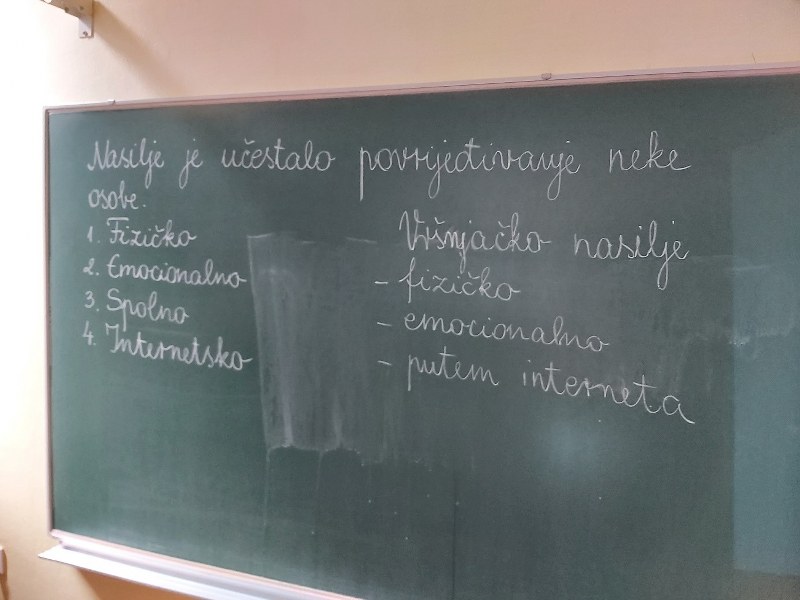 Nasilje je učestalo povrijeđivanje neke
osobe.
1. Fizičko
2. Emocionalno
3. Spolno
4. Internetsko
Vršnjačko nasilje
- fizičko
- emocionalno
- putem interneta